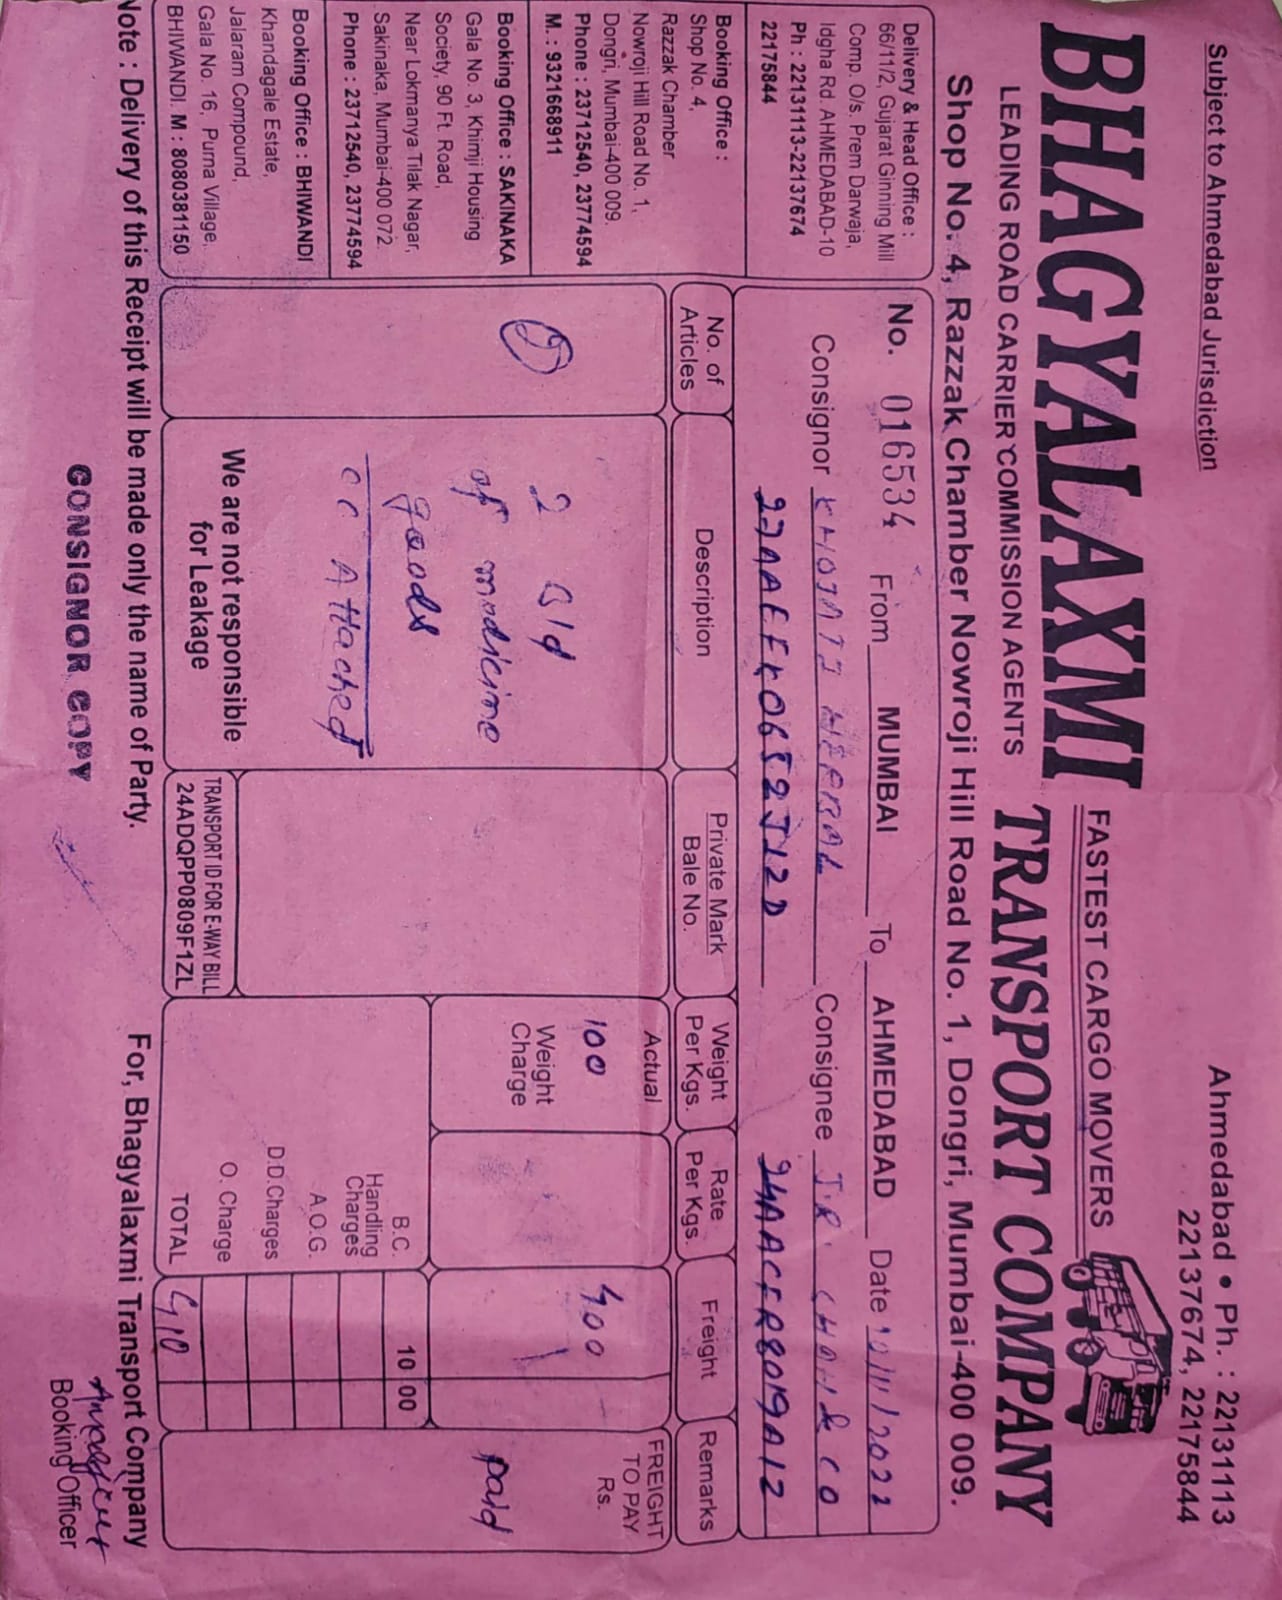 Subject to Ahmedabad Jurisdiction
Ahmedabad • Ph. : 22131113
22137674, 22175844
BHAGYALAXMI
FASTEST CARGO MOVERS
LEADING ROAD CARRIER COMMISSION AGENTS
TRANSPORT COMPANY
Shop No. 4, Razzak Chamber Nowroji Hill Road No. 1, Dongri, Mumbai-400 009.
Delivery & Head Office :
66/11/2, Gujarat Ginning Mill
Comp. O/s. Prem Darwaja,
Idgha Rd. AHMEDABAD-10
Ph : 22131113-22137674
22175844
Booking Office :
Shop No. 4,
Razzak Chamber
Nowroji Hill Road No. 1,
Dongri, Mumbai-400 009.
Phone : 23712540, 23774594
M. : 9321668911
Booking Office : SAKINAKA
Gala No. 3, Khimji Housing
Society, 90 Ft. Road,
Near Lokmanya Tilak Nagar,
Sakinaka, Mumbai-400 072.
Phone : 23712540, 23774594
Booking Office : BHIWANDI
Khandagale Estate,
Jalaram Compound,
Gala No. 16, Purna Village,
BHIWANDI. M : 8080381150
No. 016534 From MUMBAI To AHMEDABAD Date 10/11/2022
Consignor KHOJATI HERBAL Consignee J.R. & CO
27AAEFK0652J1ZD 24AACFR8019A1Z
No. of Articles
Description
Private Mark
Bale No.
Weight Per Kgs.
Rate Per Kgs.
Freight
Remarks
2 B/d
of medicine
goods
CC Attached
We are not responsible
for Leakage
TRANSPORT ID FOR E-WAY BILL
24ADQPP0809F1ZL
Actual
100
Weight
Charge
400
FREIGHT
TO PAY
Rs.
paid
B.C. 10 00
Handling
Charges
A.O.G.
D.D.Charges
O. Charge
TOTAL 410
Note : Delivery of this Receipt will be made only the name of Party.
For, Bhagyalaxmi Transport Company
CONSIGNOR COPY
Booking Officer